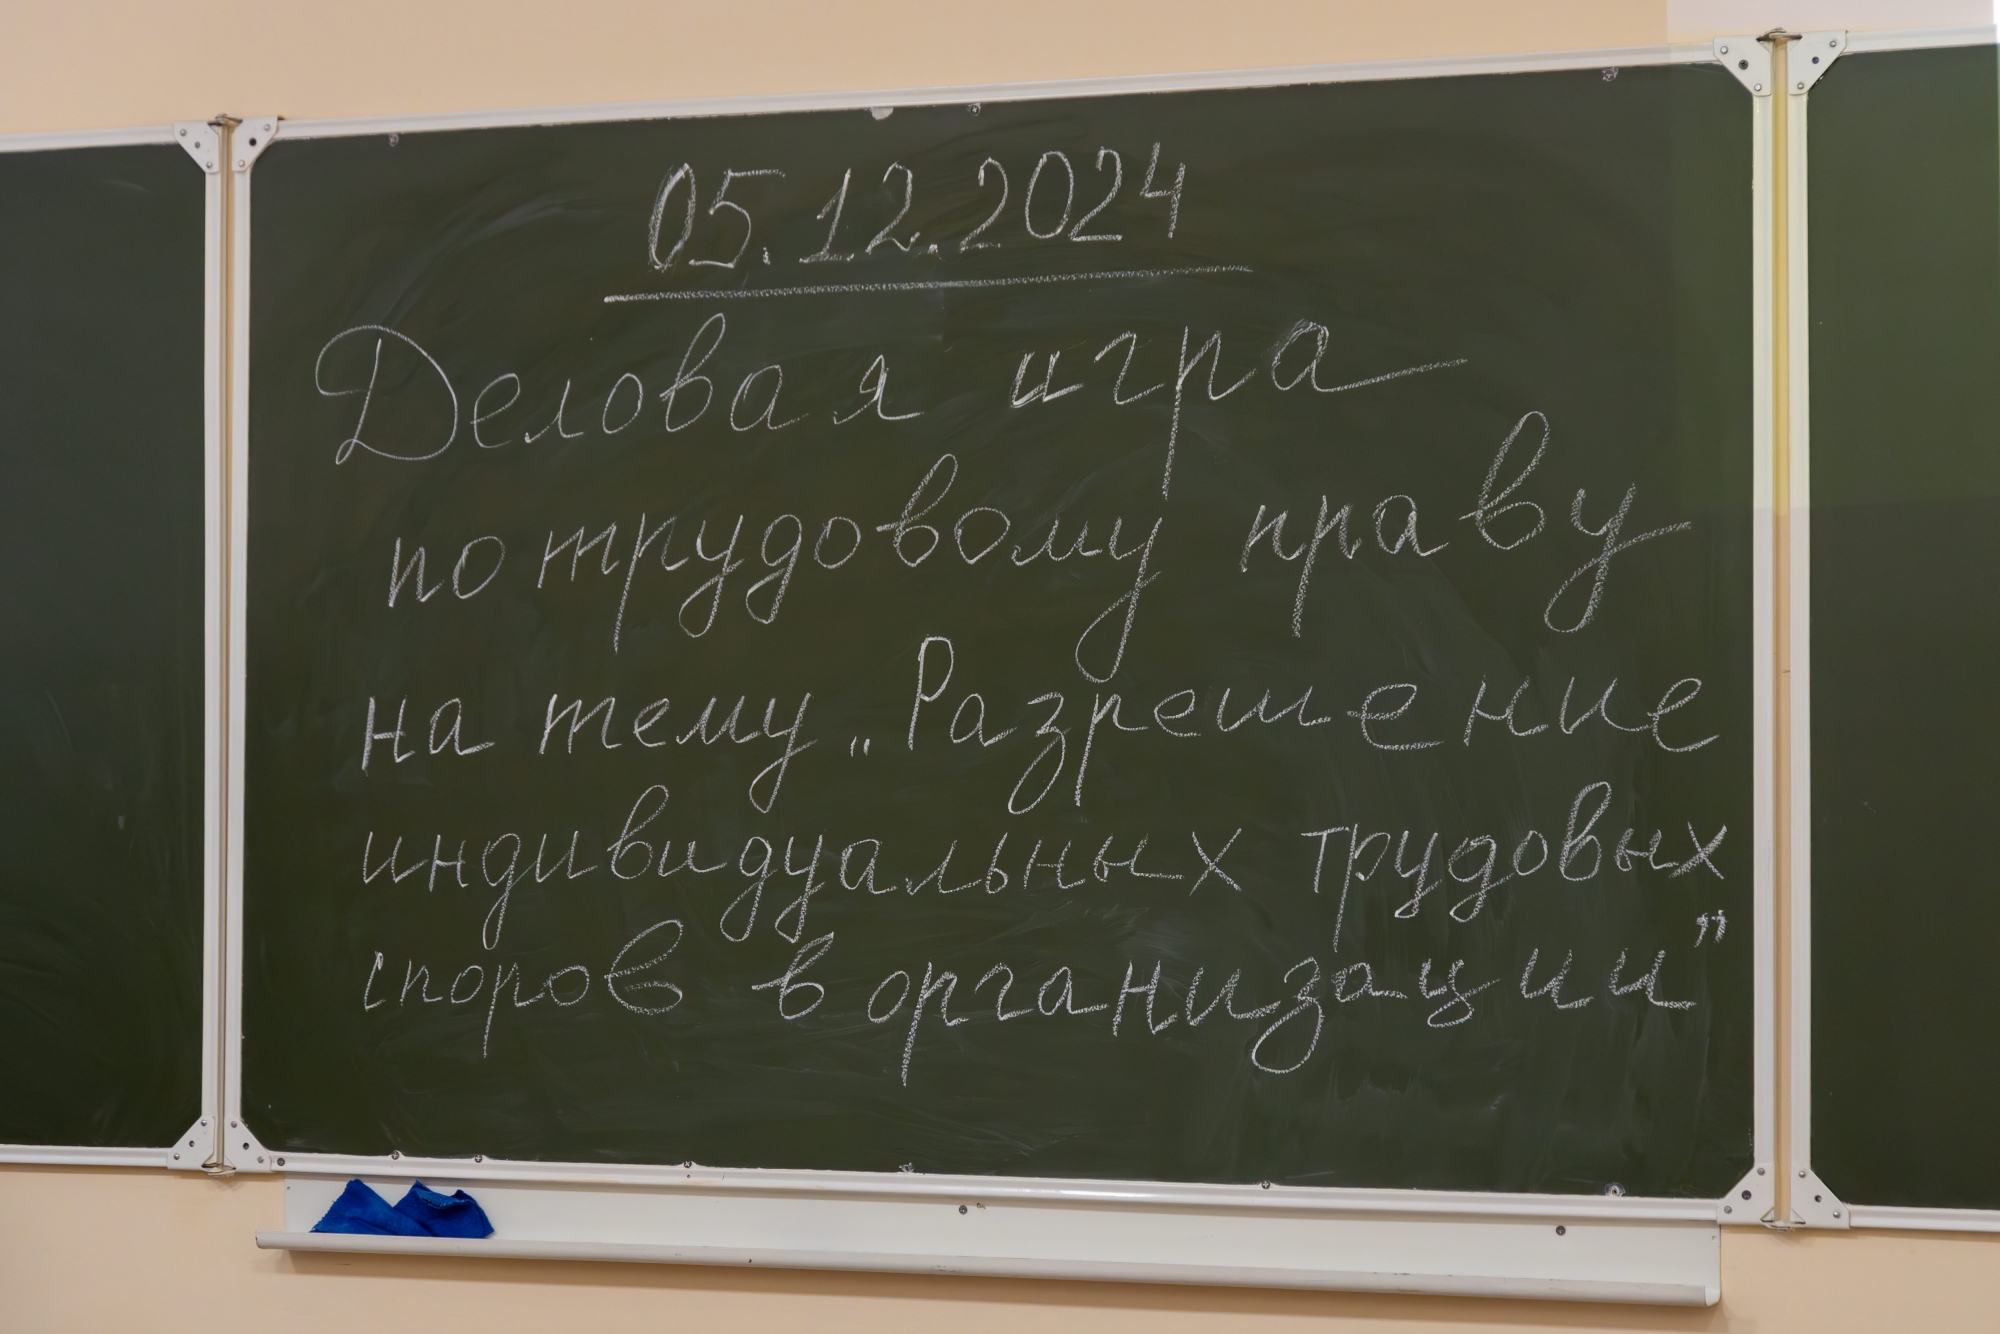 05.12.2024
Деловая игра
по трудовому праву
на тему „Разрешение
индивидуальных трудовых
споров в организации”